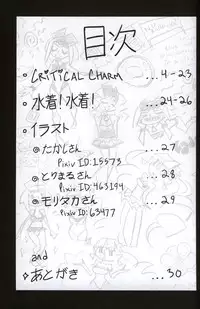 目次
。CRITICAL CHARM ...4-23
。水着!水着! ...24-26
。イラスト
@たかしさん ...27
Pixiv ID:15573
@とりまるさん ...28
Pixiv ID:463194
@モリタカさん ...29
Pixiv ID:63477
and
。あとがき ...30